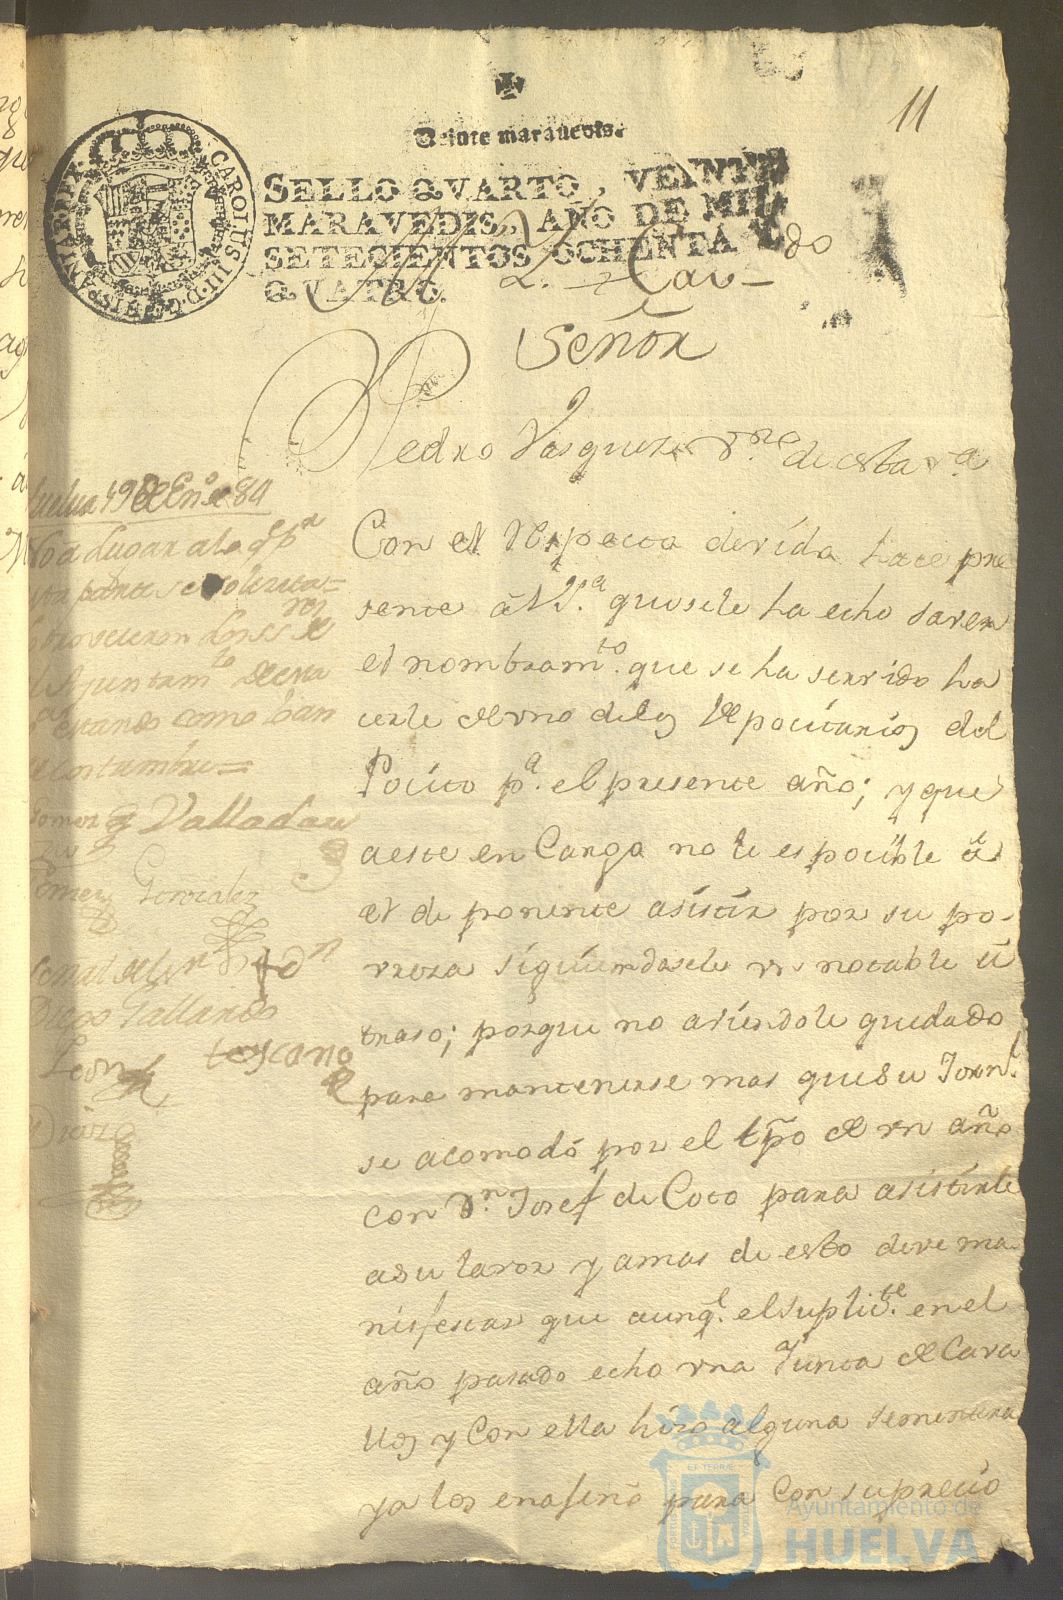 11
Veinte maravedis.
SELLO QVARTO, VEINTE
MARAVEDIS, AÑO DE MIL
SETECIENTOS OCHENTA Y
QVATRO.
CAROLUS III D.G. HISPANIAR REX
Cav-do
Señor
Pedro Vasquez vno de esta va
Con el respecto devida hace pre
sente á V.Sa que sele ha echo saver
el nombramto. que se ha servido ha
cerle de vno delos Depocitarios del
Pocito pa. el presente año; y que
aeste en Cargo no le es pocible á
el de ponente asistir por su po-
vreza siguiendosele vn notable a
traso; porque no aviendole quedado
para mantenerse mas que su Jornl.
se acomodó por el tpo de vn año
con Dn. Josef de Coto para asistirle
asu lavor y amas de esto deve ma
nisfestar que aunqe. el suplicte. en el
año pasado echo vna Junta de Cava
llos y Con ella hizo alguna sementera
ya los enageno para con su precio
Huelva 19 de Eno. de 84
No a Lugar a lo qe
esta parte solicita=
Proveieron los SSres de
el Ayuntamto de esta
estando como han
de costumbre=
Gomez Valladares
Gomez Gonzalez
señal del sr + Dn
Diego Gallardo
Leon toscano
Ayuntamiento de
HUELVA